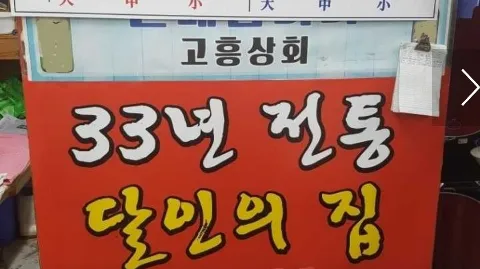 大 中 小 大 中 小
고흥상회
33년 전통
달인의 집